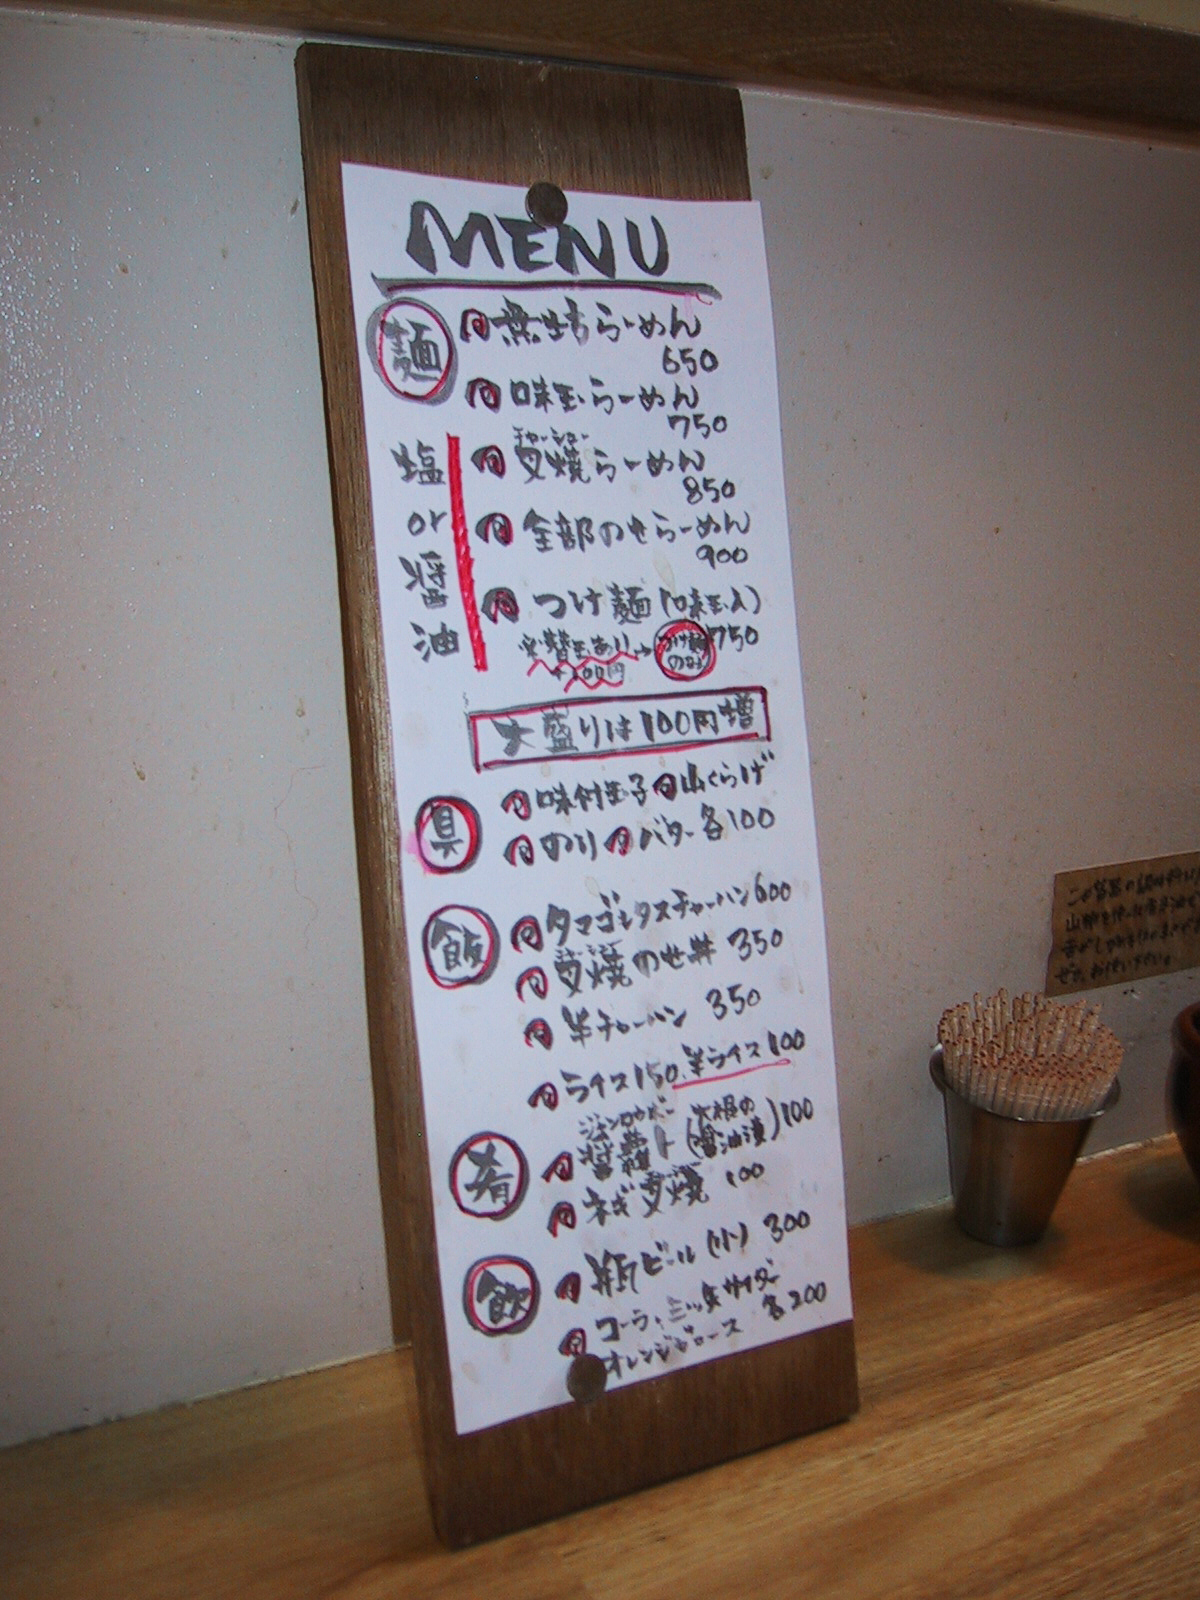 MENU
麺
らーめん
650
味玉らーめん
750
塩
or
醤
油
チャーシュー
叉焼らーめん
850
全部のせらーめん
900
つけ麺(味玉入)
750
替玉あり→
+100円
つけ麺
のみ
大盛りは100円増
具
味付玉子 山くらげ
のり バター 各100
飯
タマゴレタスチャーハン600
叉焼のせ丼 350
半チャーハン 350
ライス150. 半ライス100
肴
(大根の
醤油漬)100
ネギ叉焼 100
飲
瓶ビール(小) 300
コーラ、三ッ矢サイダー
オレンジジュース 各200